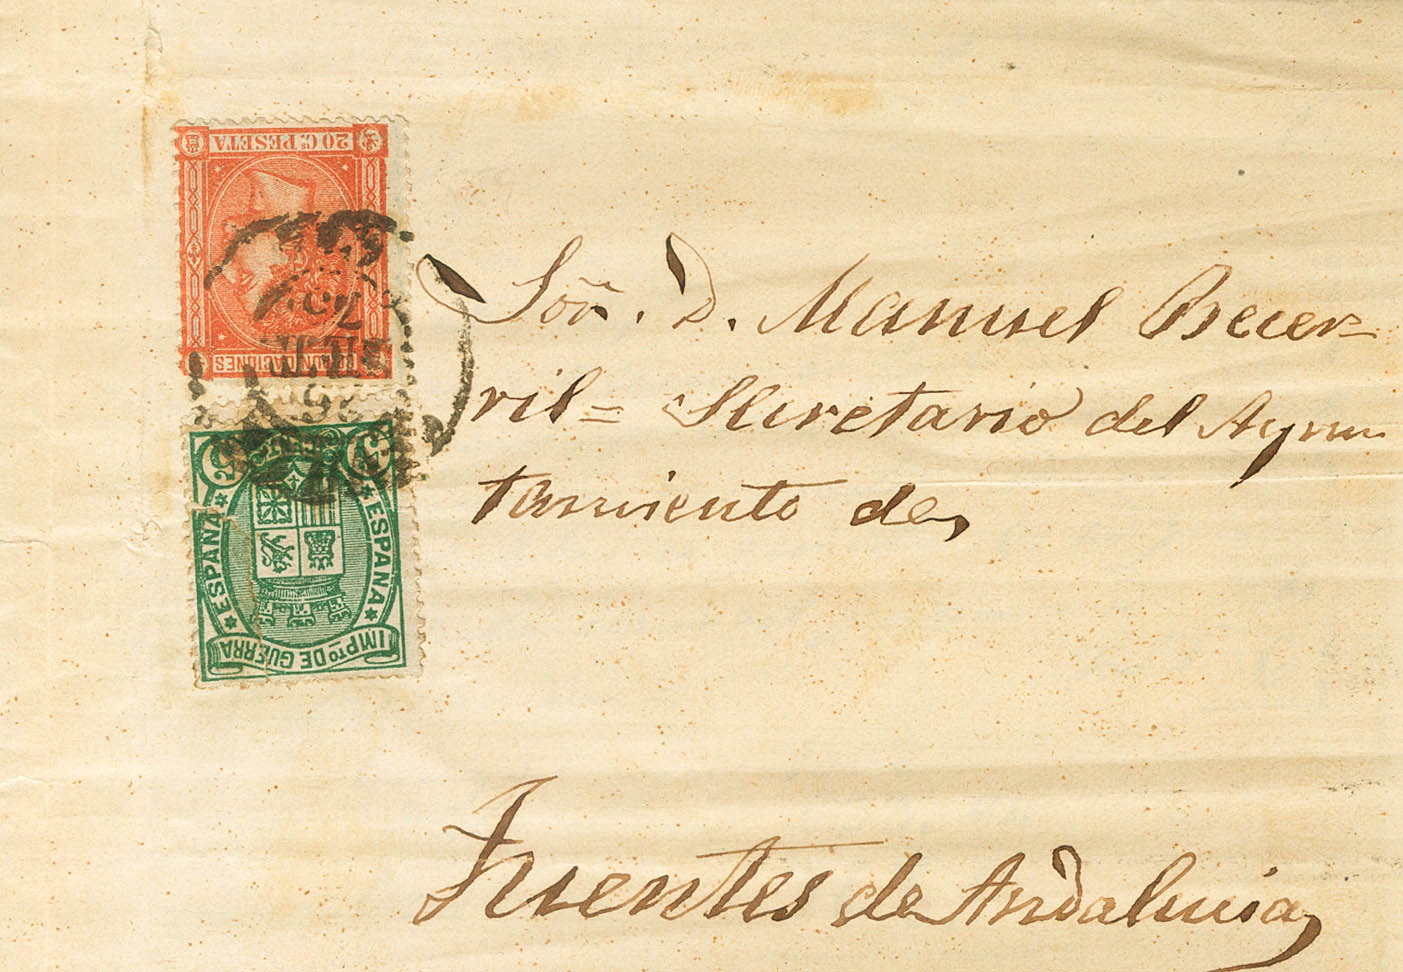 20 C. PESETA
COMUNICACIONES
5 5
ESPAÑA
ESPAÑA
IMPTO DE GUERRA
Sor. D. Manuel Becer=
ril= Secretario del Ayun
tamiento de
Fuentes de Andalucia